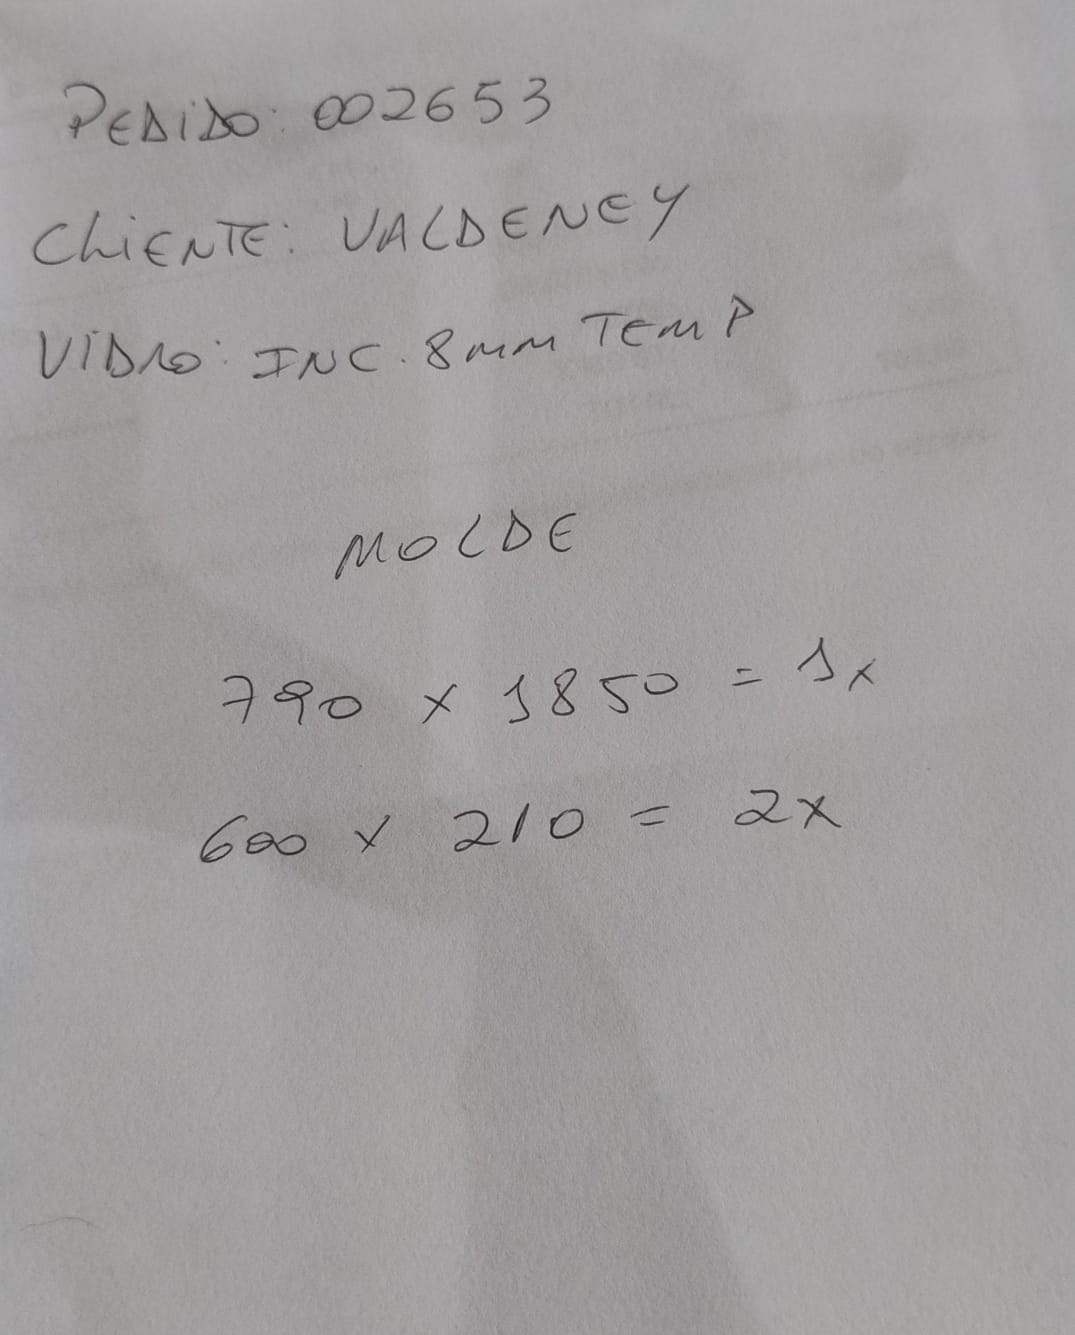 PEDIDO: 002653
CLIENTE: VALDENEY
VIDRO: INC. 8mm TEMP
MOLDE
790 x 1850 = 1x
600 x 210 = 2x